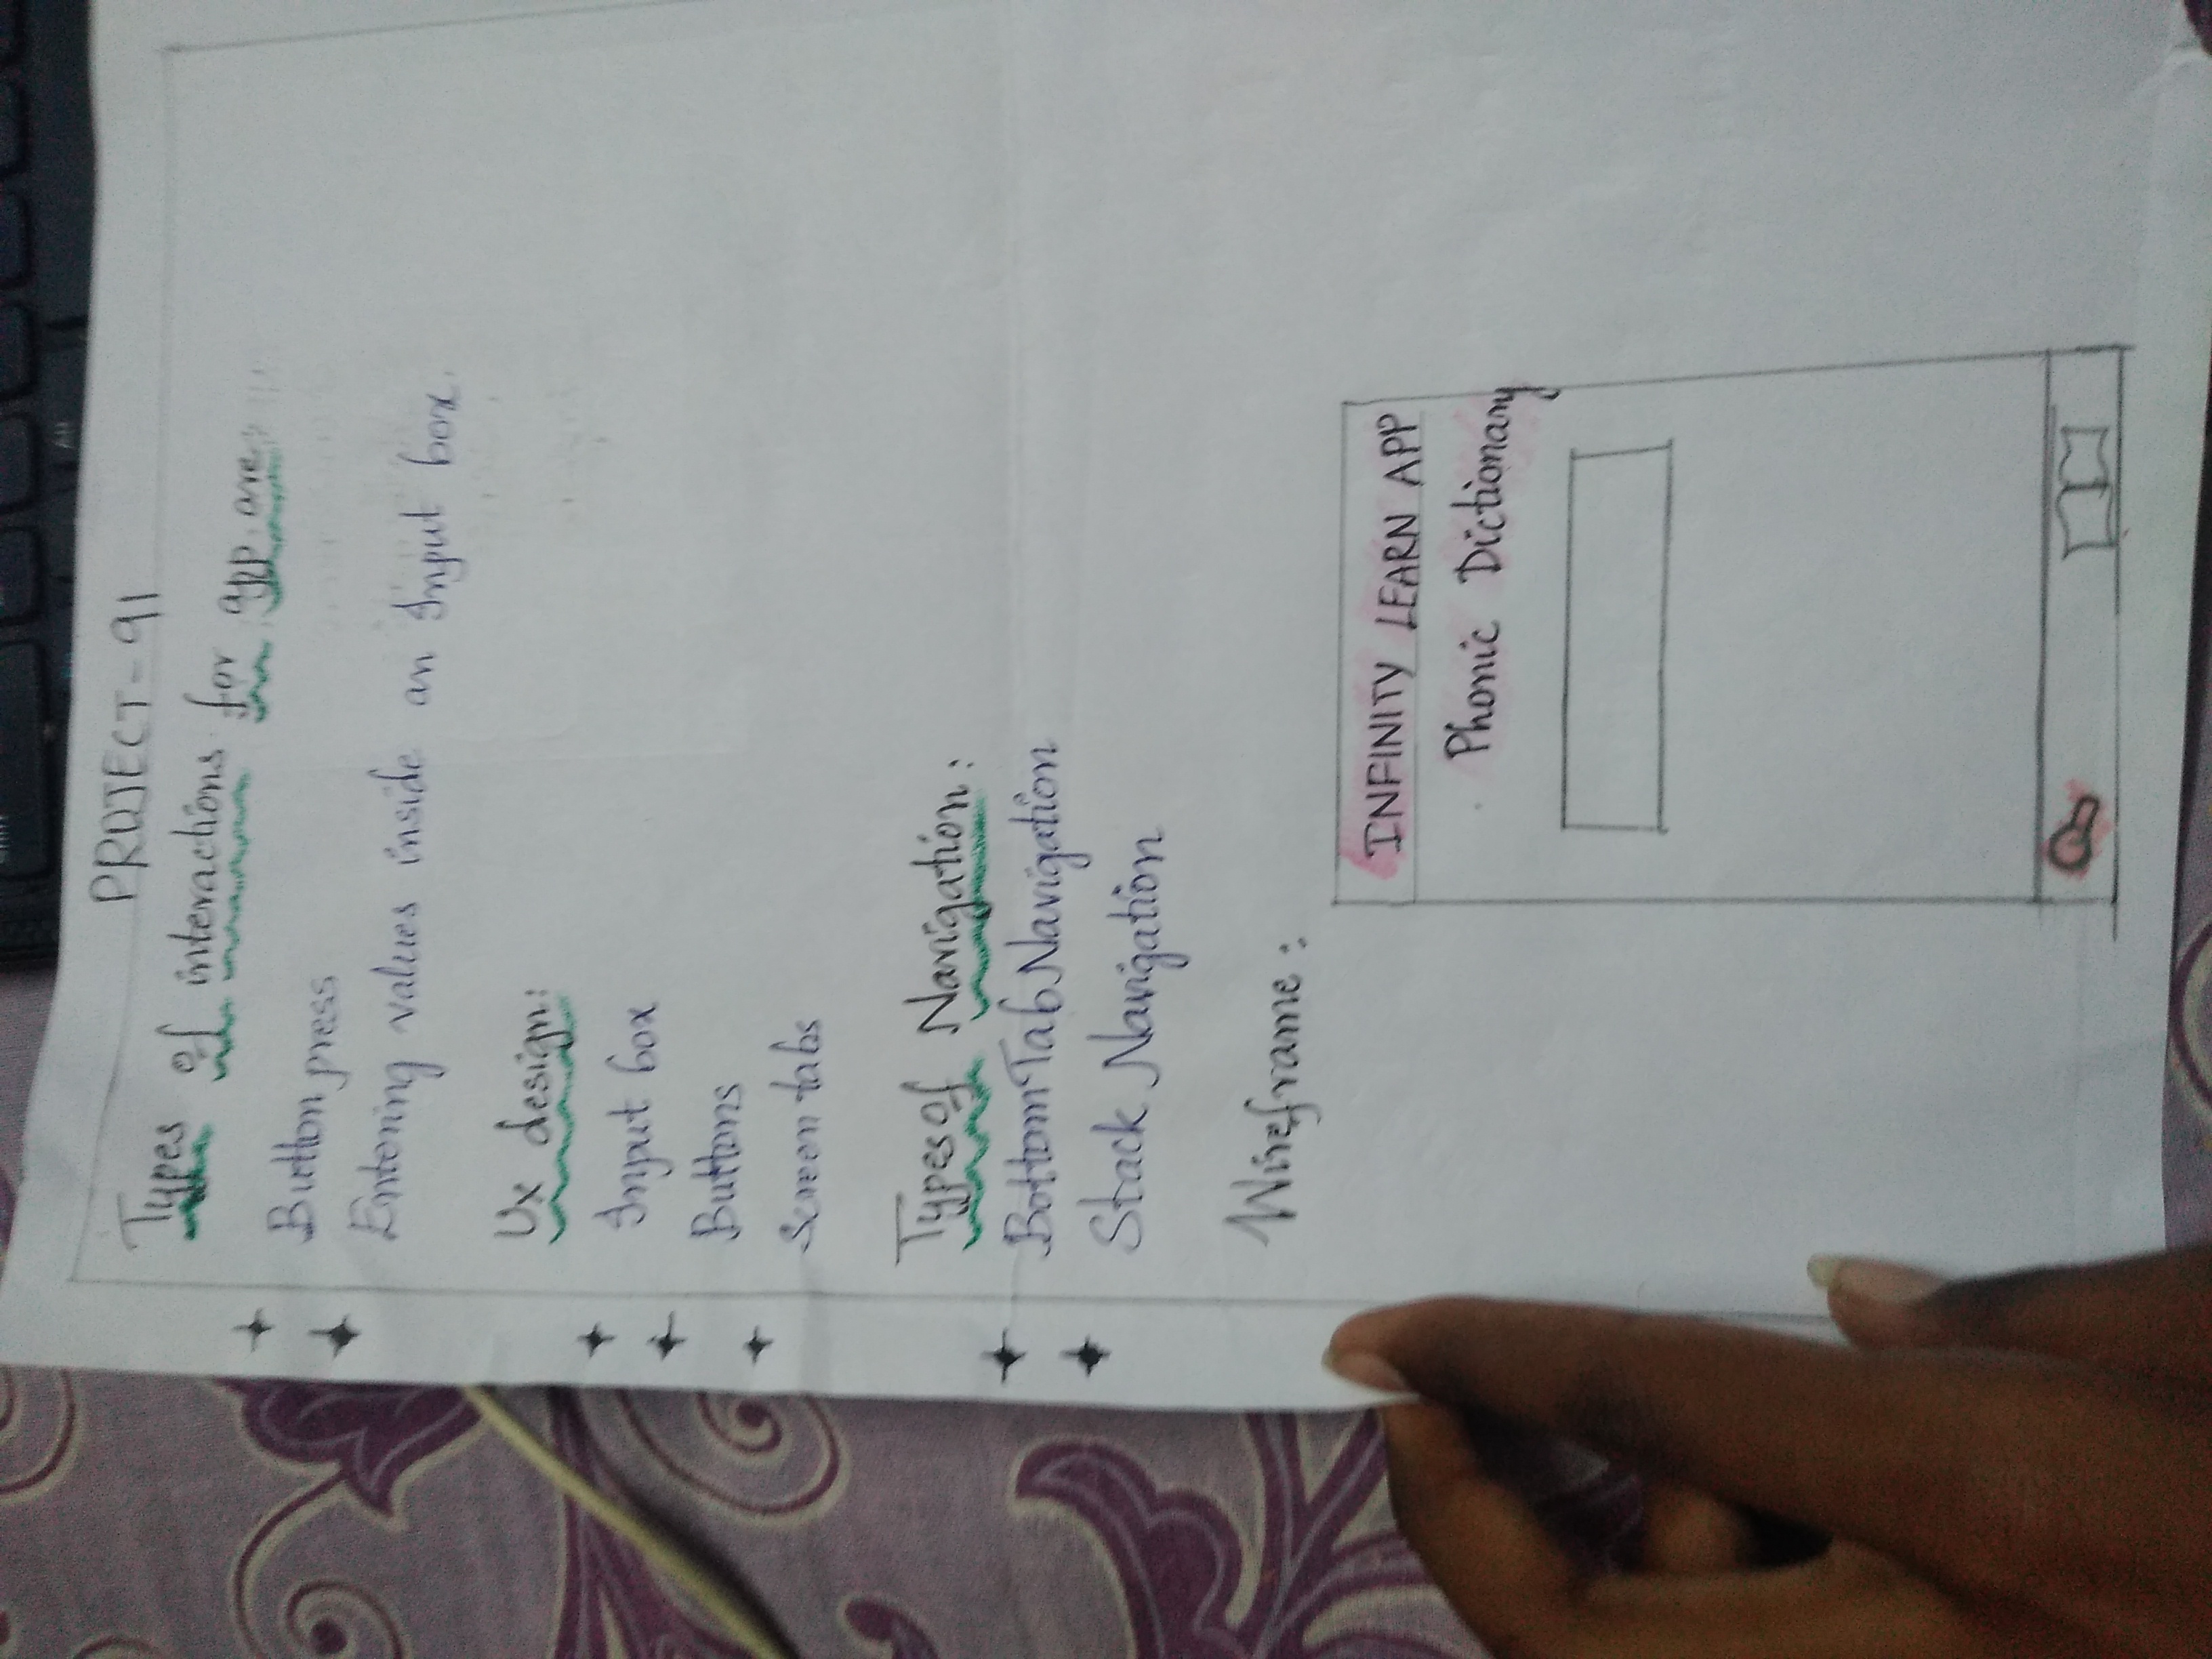 PROJECT-91
Types of interactions for app are
Button press
Entering values inside an Input box.
Ux design:
Input box
Buttons
Screen tabs
Types of Navigation:
Bottom Tab Navigation
Stack Navigation
Wireframe:
INFINITY LEARN APP
Phonic Dictionary